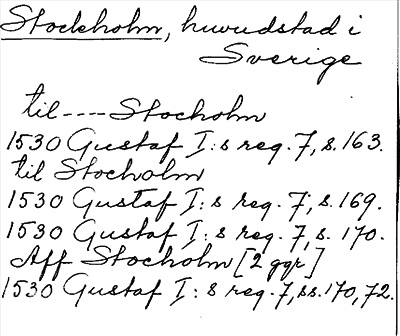 Stockholm, huvudstad i
Sverige
til ---- Stocholm
1530 Gustaf I:s reg. 7, s. 163.
til Stocholm
1530 Gustaf I:s reg. 7, s. 169.
1530 Gustaf I:s reg. 7, s. 170.
Aff Stocholm [2 ggr]
1530 Gustaf I:s reg. 7, ss. 170, 72.